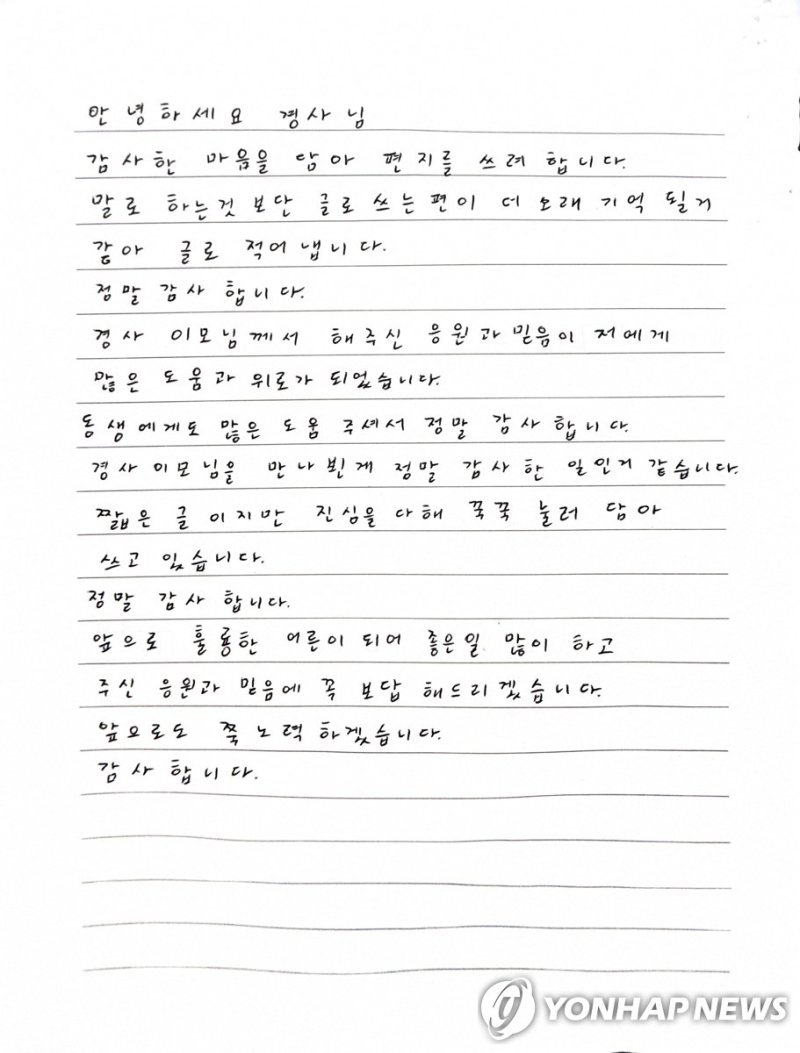 안녕하세요 경사님
감사한 마음을 담아 편지를 쓰려 합니다.
말로 하는것 보단 글로 쓰는편이 더 오래 기억 될거
같아 글로 적어 냅니다.
정말 감사 합니다.
경사 이모님께서 해주신 응원과 믿음이 저에게
많은 도움과 위로가 되었습니다.
동생에게도 많은 도움 주셔서 정말 감사 합니다.
경사 이모님을 만나 뵌게 정말 감사한 일인거 같습니다.
짧은 글 이지만 진심을 다해 꾹꾹 눌러 담아
쓰고 있습니다.
정말 감사 합니다.
앞으로 훌륭한 어른이 되어 좋은일 많이 하고
주신 응원과 믿음에 꼭 보답 해드리겠습니다.
앞으로도 쭉 노력 하겠습니다.
감사합니다.
YONHAP NEWS